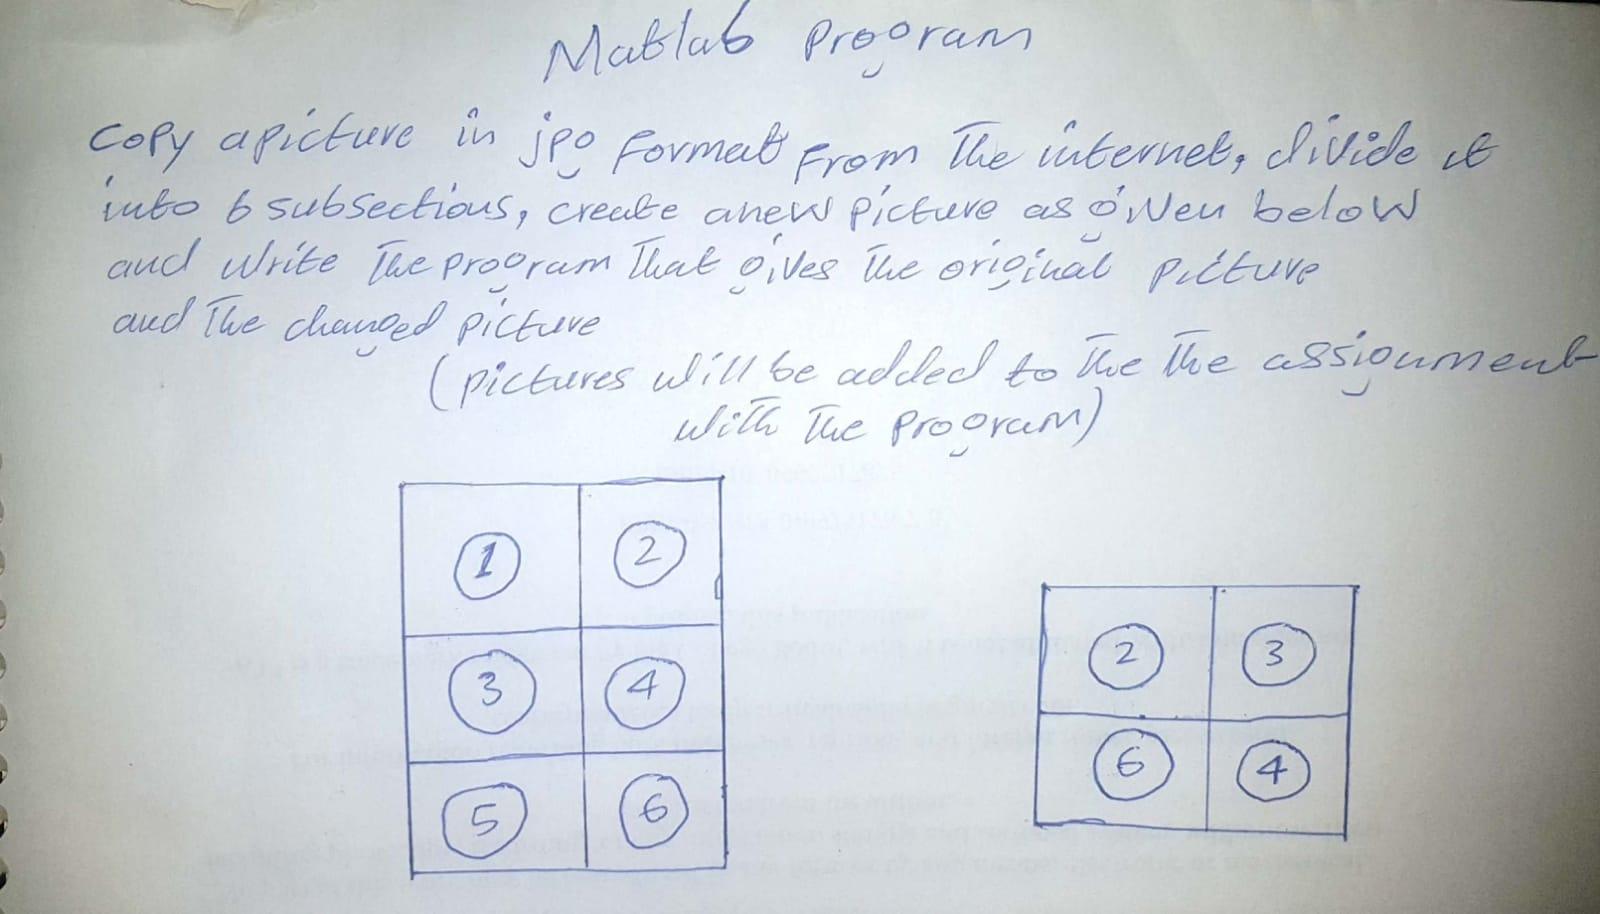 Matlab Program
Copy a picture in jpg format from the internet, divide it
into 6 subsections, create a new picture as given below
and write the program that gives the original picture
and the changed picture
(pictures will be added to the the assignment
with the program)
1 2
3 4
5 6
2 3
6 4